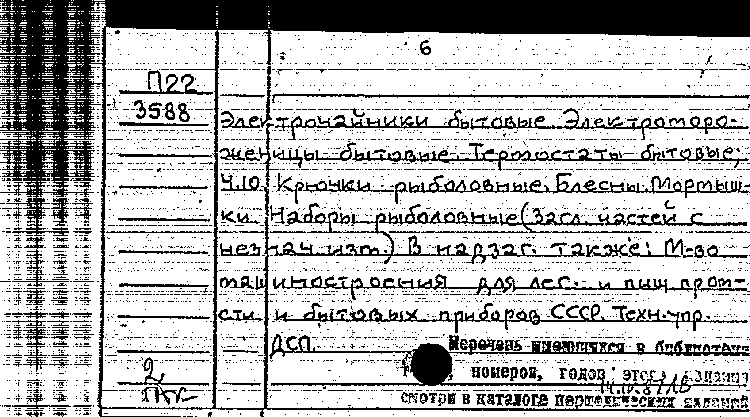 6
П22
3588
Электрочайники бытовые. Электроморо-
женицы бытовые. Термостаты бытовые;
Ч.10. Крючки рыболовные. Блесны. Мормыш-
ки. Наборы рыболовные (Загл. частей с
незнач. изм.) В надзаг. также: М-во
машиностроения для лег. и пищ. пром-
сти и бытовых приборов СССР. Техн. упр.
ДСП.
Перечень имеющихся в библиотеке
номеров, годов этого издания
смотри в каталоге периодических изданий
2